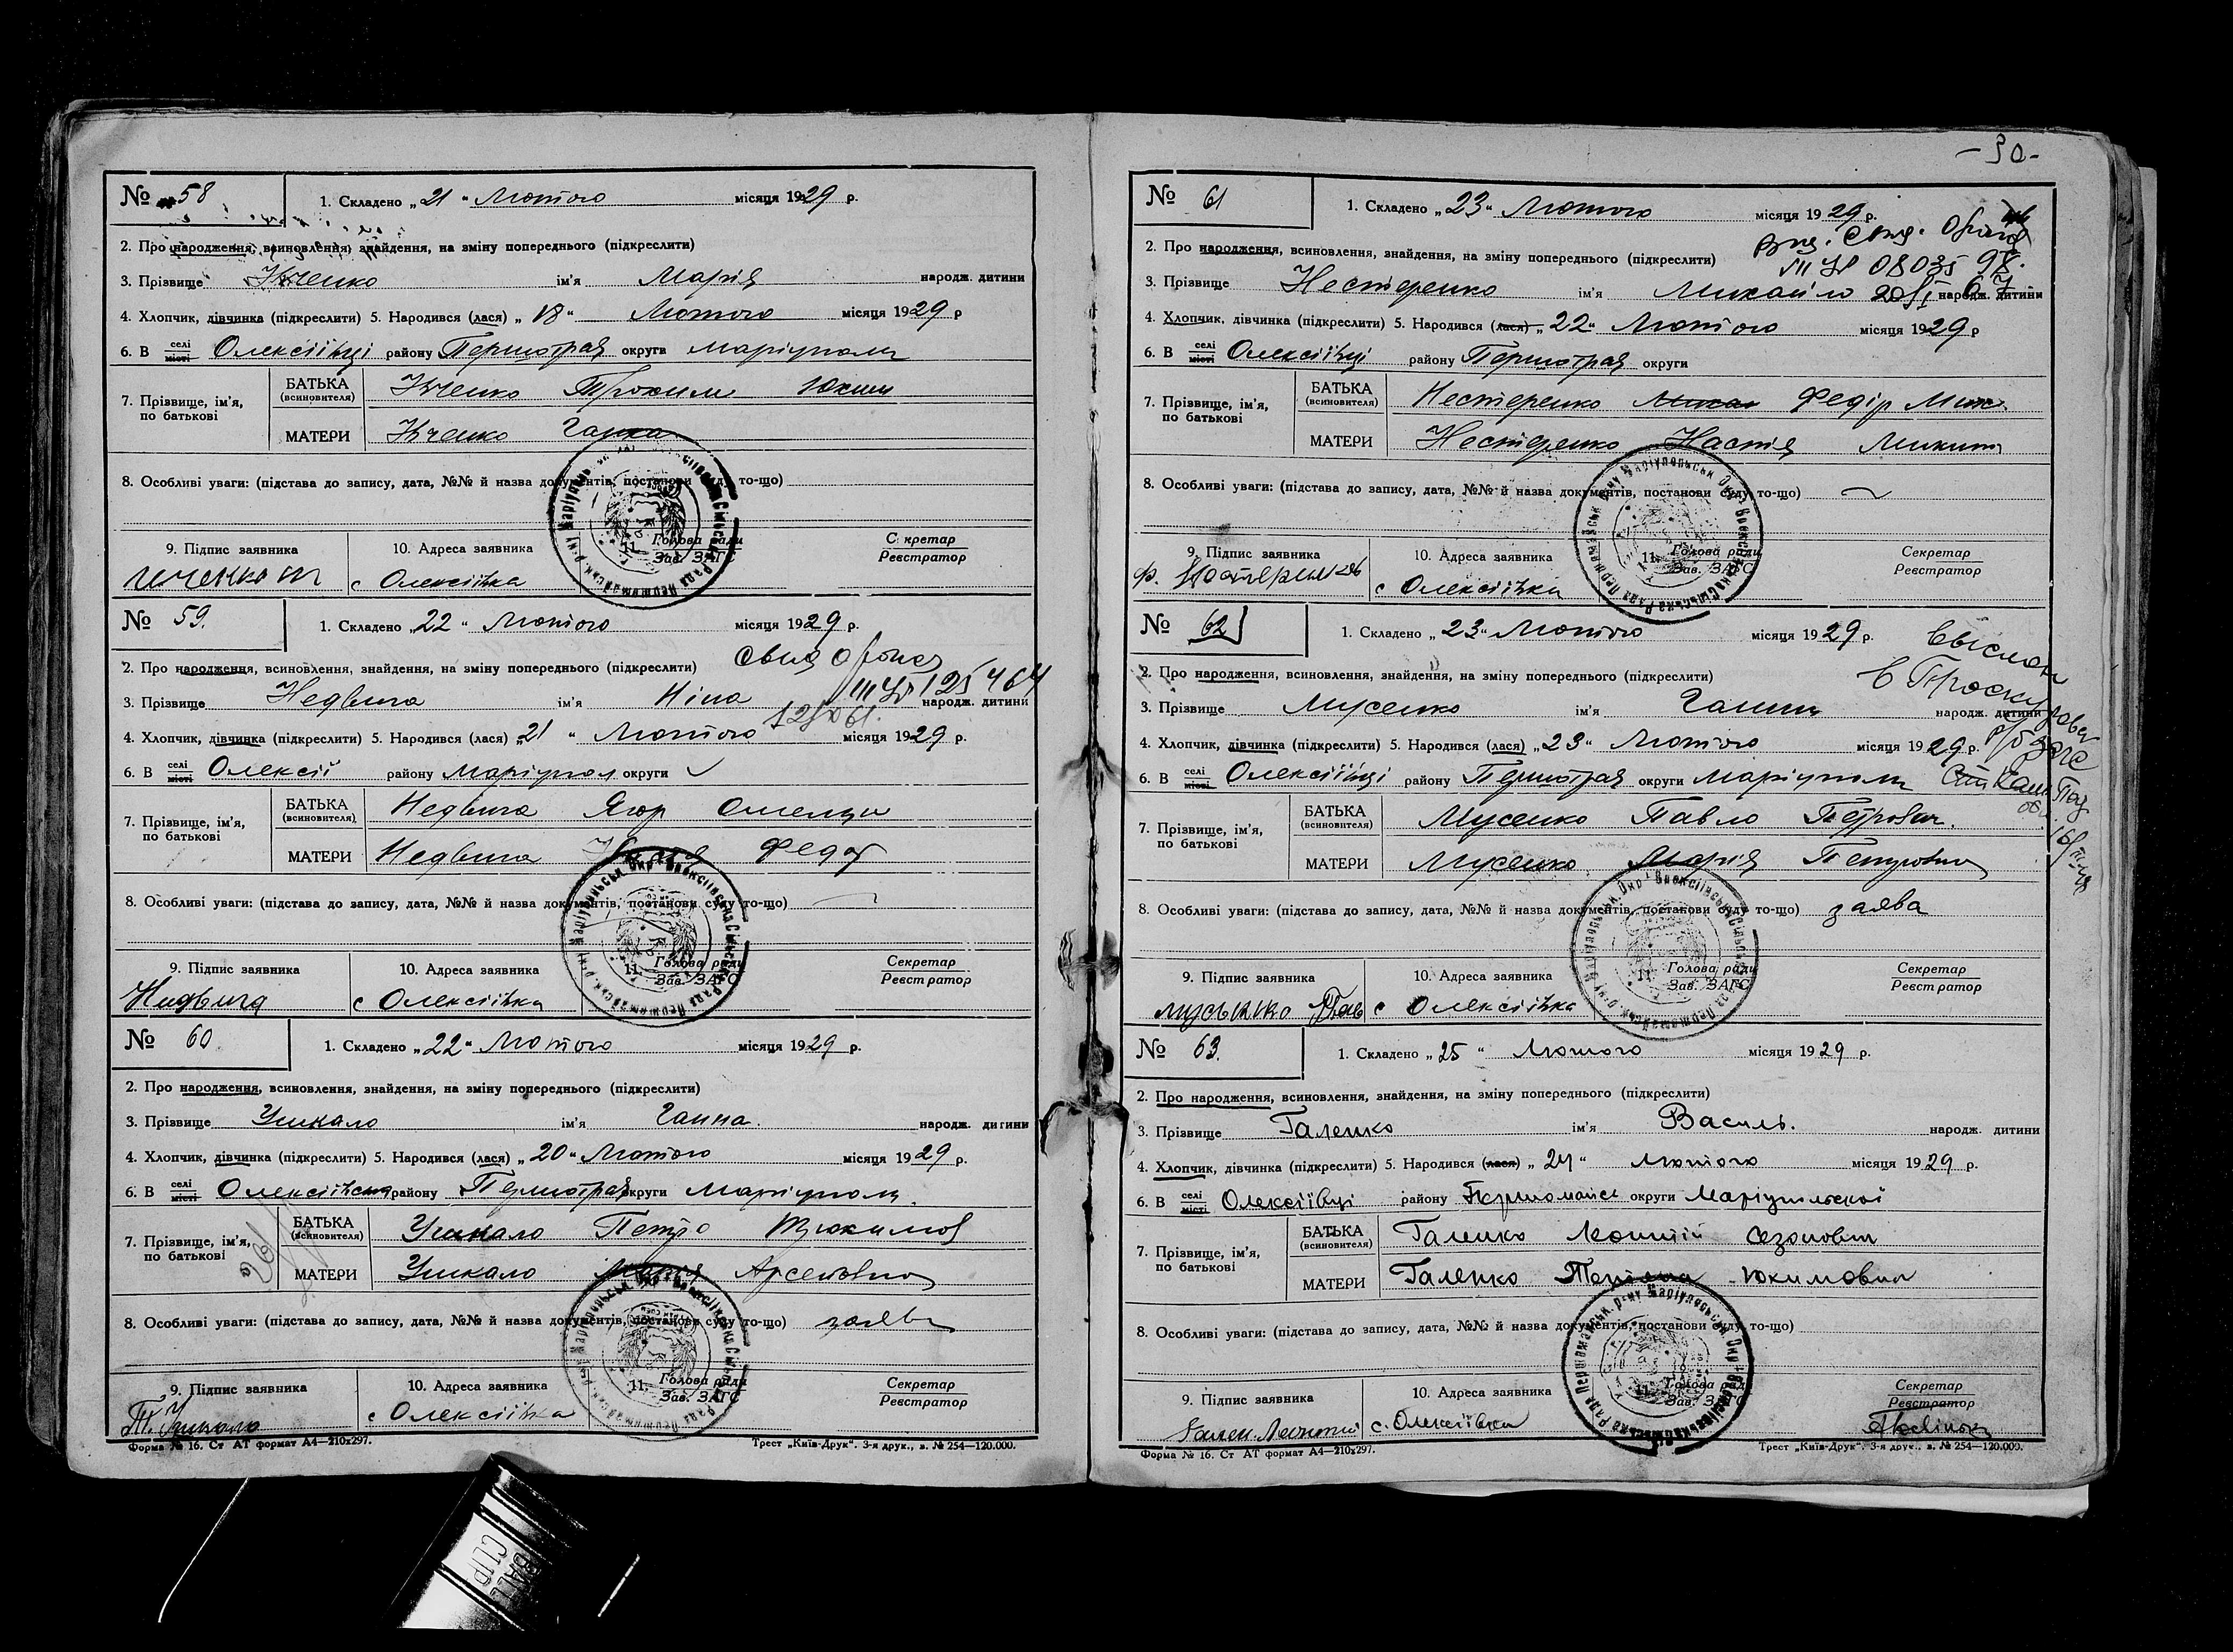 № 58
1. Складено „21“ Лютого місяця 1929 р.
2. Про народження, всиновлення, знайдення, на зміну попереднього (підкреслити)
3. Прізвище ім'я Марія народж. дитини
4. Хлопчик, дівчинка (підкреслити) 5. Народився (лася) „18“ Лютого місяця 1929 р
6. В селі місті Олексіївці району Першотрав округи Маріуполь
7. Прізвище, ім'я, по батькові
БАТЬКА (всиновителя) Трохим Юхим
МАТЕРИ Ганна
8. Особливі уваги: (підстава до запису, дата, №№ й назва документів, постанови суду то-що)
9. Підпис заявника 10. Адреса заявника 11. Голова ради Зав. ЗАГС Секретар Реєстратор
с Олексіівка
№ 59.
1. Складено „22“ Лютого місяця 1929 р.
2. Про народження, всиновлення, знайдення, на зміну попереднього (підкреслити)
3. Прізвище Недвига ім'я Ніна народж. дитини
125464
4. Хлопчик, дівчинка (підкреслити) 5. Народився (лася) „21“ Лютого місяця 1929 р.
6. В селі місті Олексії району Маріупол округи
7. Прізвище, ім'я, по батькові
БАТЬКА (всиновителя) Недвига Ягор Омельян
МАТЕРИ Недвига Федот
8. Особливі уваги: (підстава до запису, дата, №№ й назва документів, постанови суду то-що)
9. Підпис заявника 10. Адреса заявника 11. Голова ради Зав. ЗАГС Секретар Реєстратор
Нидвига с Олексіівка
№ 60.
1. Складено „22“ Лютого місяця 1929 р.
2. Про народження, всиновлення, знайдення, на зміну попереднього (підкреслити)
3. Прізвище Ушкало ім'я Ганна. народж. дитини
4. Хлопчик, дівчинка (підкреслити) 5. Народився (лася) „20“ Лютого місяця 1929 р.
6. В селі місті району Першотрав округи Маріуполь.
7. Прізвище, ім'я, по батькові
БАТЬКА (всиновителя) Ушкало Петро
МАТЕРИ Ушкало Марія Арсентовна
8. Особливі уваги: (підстава до запису, дата, №№ й назва документів, постанови суду то-що) заява
9. Підпис заявника 10. Адреса заявника 11. Голова ради Зав. ЗАГС Секретар Реєстратор
с Олексіівка
Форма № 16. Ст АТ формат А4—210х297. Трест „Київ-Друк“. 3-я друк., в. № 254—120.000.
№ 61
1. Складено „23“ Лютого місяця 1929 р.
2. Про народження, всиновлення, знайдення, на зміну попереднього (підкреслити)
3. Прізвище Нестеренко ім'я Михайло народж. дитини
4. Хлопчик, дівчинка (підкреслити) 5. Народився (лася) „22“ Лютого місяця 1929 р
6. В селі місті Олексіївці району Першотрав округи
7. Прізвище, ім'я, по батькові
БАТЬКА (всиновителя) Нестеренко Федір Мих.
МАТЕРИ Нестеренко Настя Микит
8. Особливі уваги: (підстава до запису, дата, №№ й назва документів, постанови суду то-що)
9. Підпис заявника 10. Адреса заявника 11. Голова ради Зав. ЗАГС Секретар Реєстратор
с Олексіівка
№ 62
1. Складено „23“ Лютого місяця 1929 р.
2. Про народження, всиновлення, знайдення, на зміну попереднього (підкреслити)
3. Прізвище Мусенко ім'я Ганна народж. дитини
4. Хлопчик, дівчинка (підкреслити) 5. Народився (лася) „23“ Лютого місяця 1929 р.
6. В селі місті Олексіївці району Першотрав округи Маріуполь
7. Прізвище, ім'я, по батькові
БАТЬКА (всиновителя) Мусенко Павло Петрович.
МАТЕРИ Мусенко Марія Петровна
8. Особливі уваги: (підстава до запису, дата, №№ й назва документів, постанови суду то-що) заява
9. Підпис заявника 10. Адреса заявника 11. Голова ради Зав. ЗАГС Секретар Реєстратор
с Олексіівка
№ 63.
1. Складено „25“ Лютого місяця 1929 р.
2. Про народження, всиновлення, знайдення, на зміну попереднього (підкреслити)
3. Прізвище Галенко ім'я Василь. народж. дитини
4. Хлопчик, дівчинка (підкреслити) 5. Народився (лася) „24“ лютого місяця 1929 р.
6. В селі місті Олексіївці району Першомайск округи Маріупольської
7. Прізвище, ім'я, по батькові
БАТЬКА (всиновителя) Галенко Леонтій
МАТЕРИ Галенко Юхимовна
8. Особливі уваги: (підстава до запису, дата, №№ й назва документів, постанови суду то-що)
9. Підпис заявника 10. Адреса заявника 11. Голова ради Зав. ЗАГС Секретар Реєстратор
с. Олексіївка
Форма № 16. Ст АТ формат А4—210х297. Трест „Київ-Друк“. 3-я друк., в. № 254—120.000.
BALL
CLIP